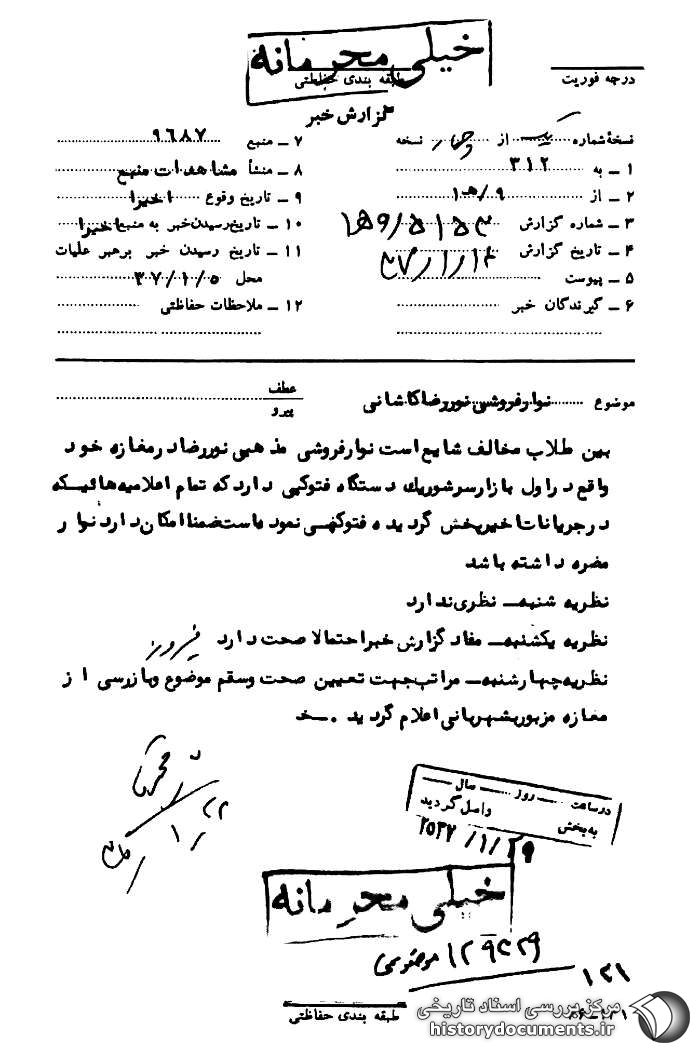 خیلی محرمانه
درجه فوریت
طبقه بندی حفاظتی
گزارش خبر
نسخهٔ شماره از نسخه
۱ ـ به ۳۱۲
۲ ـ از ۹/هـ۱
۳ ـ شماره گزارش
۴ ـ تاریخ گزارش
۵ ـ پیوست
۶ ـ گیرندگان خبر
۷ ـ منبع ۹۶۸۷
۸ ـ منشأ مشاهدات منبع
۹ ـ تاریخ وقوع اخیرا
۱۰ ـ تاریخ رسیدن خبر به منبع اخیرا
۱۱ ـ تاریخ رسیدن خبر برهبر عملیات
محل ۳۷/۱۰/۵
۱۲ ـ ملاحظات حفاظتی
موضوع نوارفروشی نوررضا کاشانی
عطف
پیرو
بین طلاب مخالف شایع است نوارفروشی مذهبی نوررضا در مغازه خود
واقع در اول بازار سرشور یک دستگاه فتوکپی دارد که تمام اعلامیه‌هائیکه
در جریانات اخیر پخش گردیده فتوکپی نموده است ضمنا امکان دارد نوار
مضره داشته باشد
نظریه شنبه ـ نظری ندارد
نظریه یکشنبه ـ مفاد گزارش خبر احتمالا صحت دارد فیروز
نظریه چهارشنبه ـ مراتب جهت تعیین صحت وسقم موضوع و بازرسی از
مغازه مزبور بشهربانی اعلام گردید . ـ خد
در ساعت روز سال
به بخش واصل گردید
۲۵۳۷/۱/۲۹
خیلی محرمانه
۱۲۱
طبقه بندی حفاظتی
مرکز بررسی اسناد تاریخی
historydocuments.ir